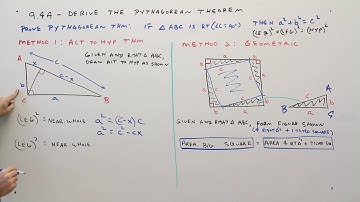 9.4A - DERIVE THE PYTHAGOREAN THEOREM
PROVE PYTHAGOREAN THM: IF △ABC IS RT (∠C=90°) THEN a² + b² = c²
(LEG)² + (LEG)² = (HYP)²
METHOD 1: ALT TO HYP THM
GIVEN ANY RIGHT △ ABC,
DRAW ALT TO HYP AS SHOWN
A
c
x
c-x
b
C
a
B
(LEG)² = NEAR·WHOLE a² = (c-x)c
a² = c² - cx
(LEG)² = NEAR·WHOLE
METHOD 2: GEOMETRIC
a
b
c
A
c
b
B
a
GIVEN ANY RIGHT △ ABC, FORM FIGURE SHOWN
(4 RIGHT △s + 1 TILTED SQUARE)
AREA BIG SQUARE = AREA 4 RT △s + TILTED SQ